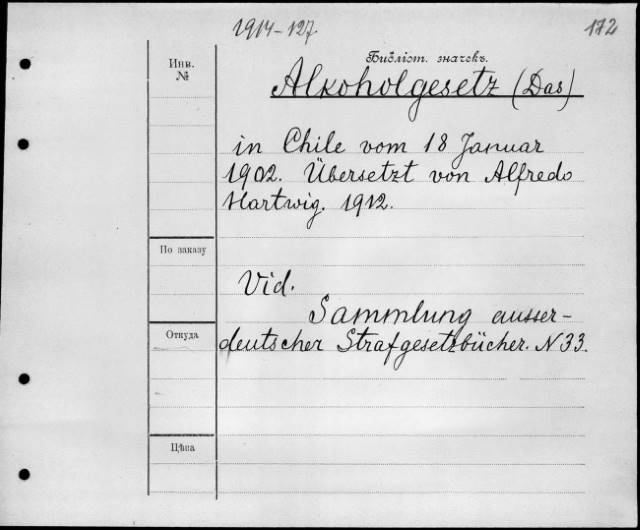 1914-127.
172
Инв.
№
Библіот. значекъ.
Alkoholgesetz (Das)
in Chile vom 18 Januar
1902. Übersetzt von Alfredo
Hartwig. 1912.
По заказу
Vid.
Sammlung ausser-
Откуда
deutscher Strafgesetzbücher. N 33.
Цѣна